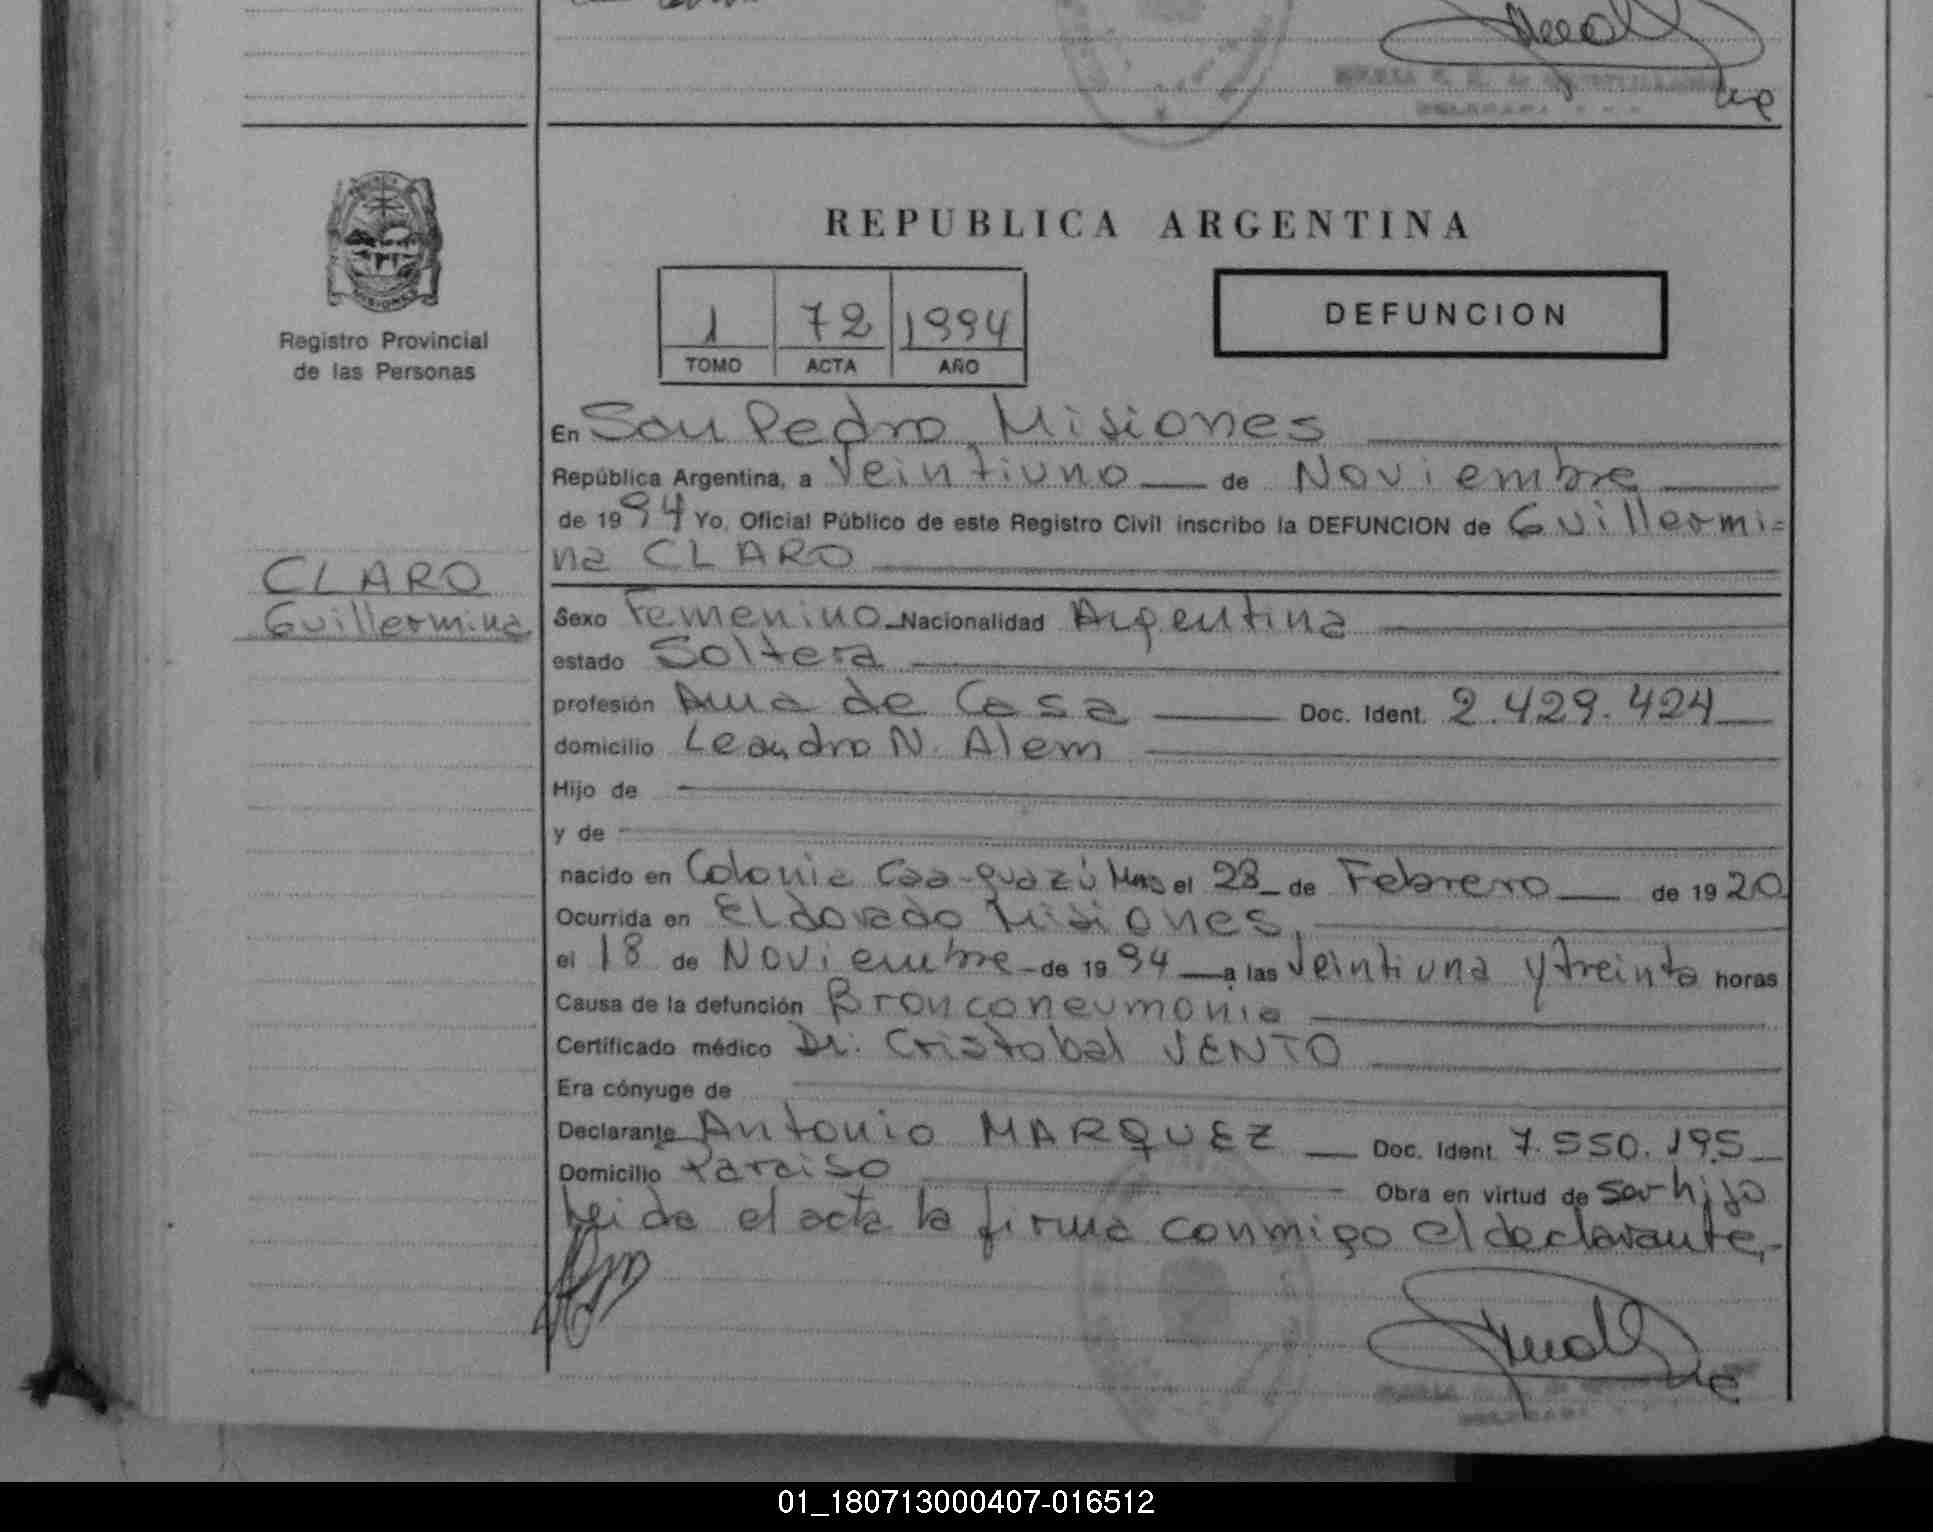 REPUBLICA ARGENTINA
1 72 1994
TOMO ACTA AÑO
DEFUNCION
MISIONES
Registro Provincial
de las Personas
CLARO
Guillermina
En San Pedro, Misiones
República Argentina, a Veintiuno de Noviembre
de 1994 Yo, Oficial Público de este Registro Civil inscribo la DEFUNCION de Guillermi=
na CLARO
Sexo Femenino Nacionalidad Argentina
estado Soltera
profesión Ama de Casa Doc. Ident. 2.429.424
domicilio Leandro N. Alem
Hijo de
y de
nacido en Colonia Caa-guazú Mnes el 28 de Febrero de 1920
Ocurrida en Eldorado Misiones,
el 18 de Noviembre de 1994 a las Veintiuna y treinta horas
Causa de la defunción Bronconeumonia
Certificado médico Dr. Cristobal VENTO
Era cónyuge de
Declarante Antonio MARQUEZ Doc. Ident. 7.550.195
Domicilio Paraiso
Obra en virtud de ser hijo
Leida el acta la firma conmigo el declarante,-
01_180713000407-016512